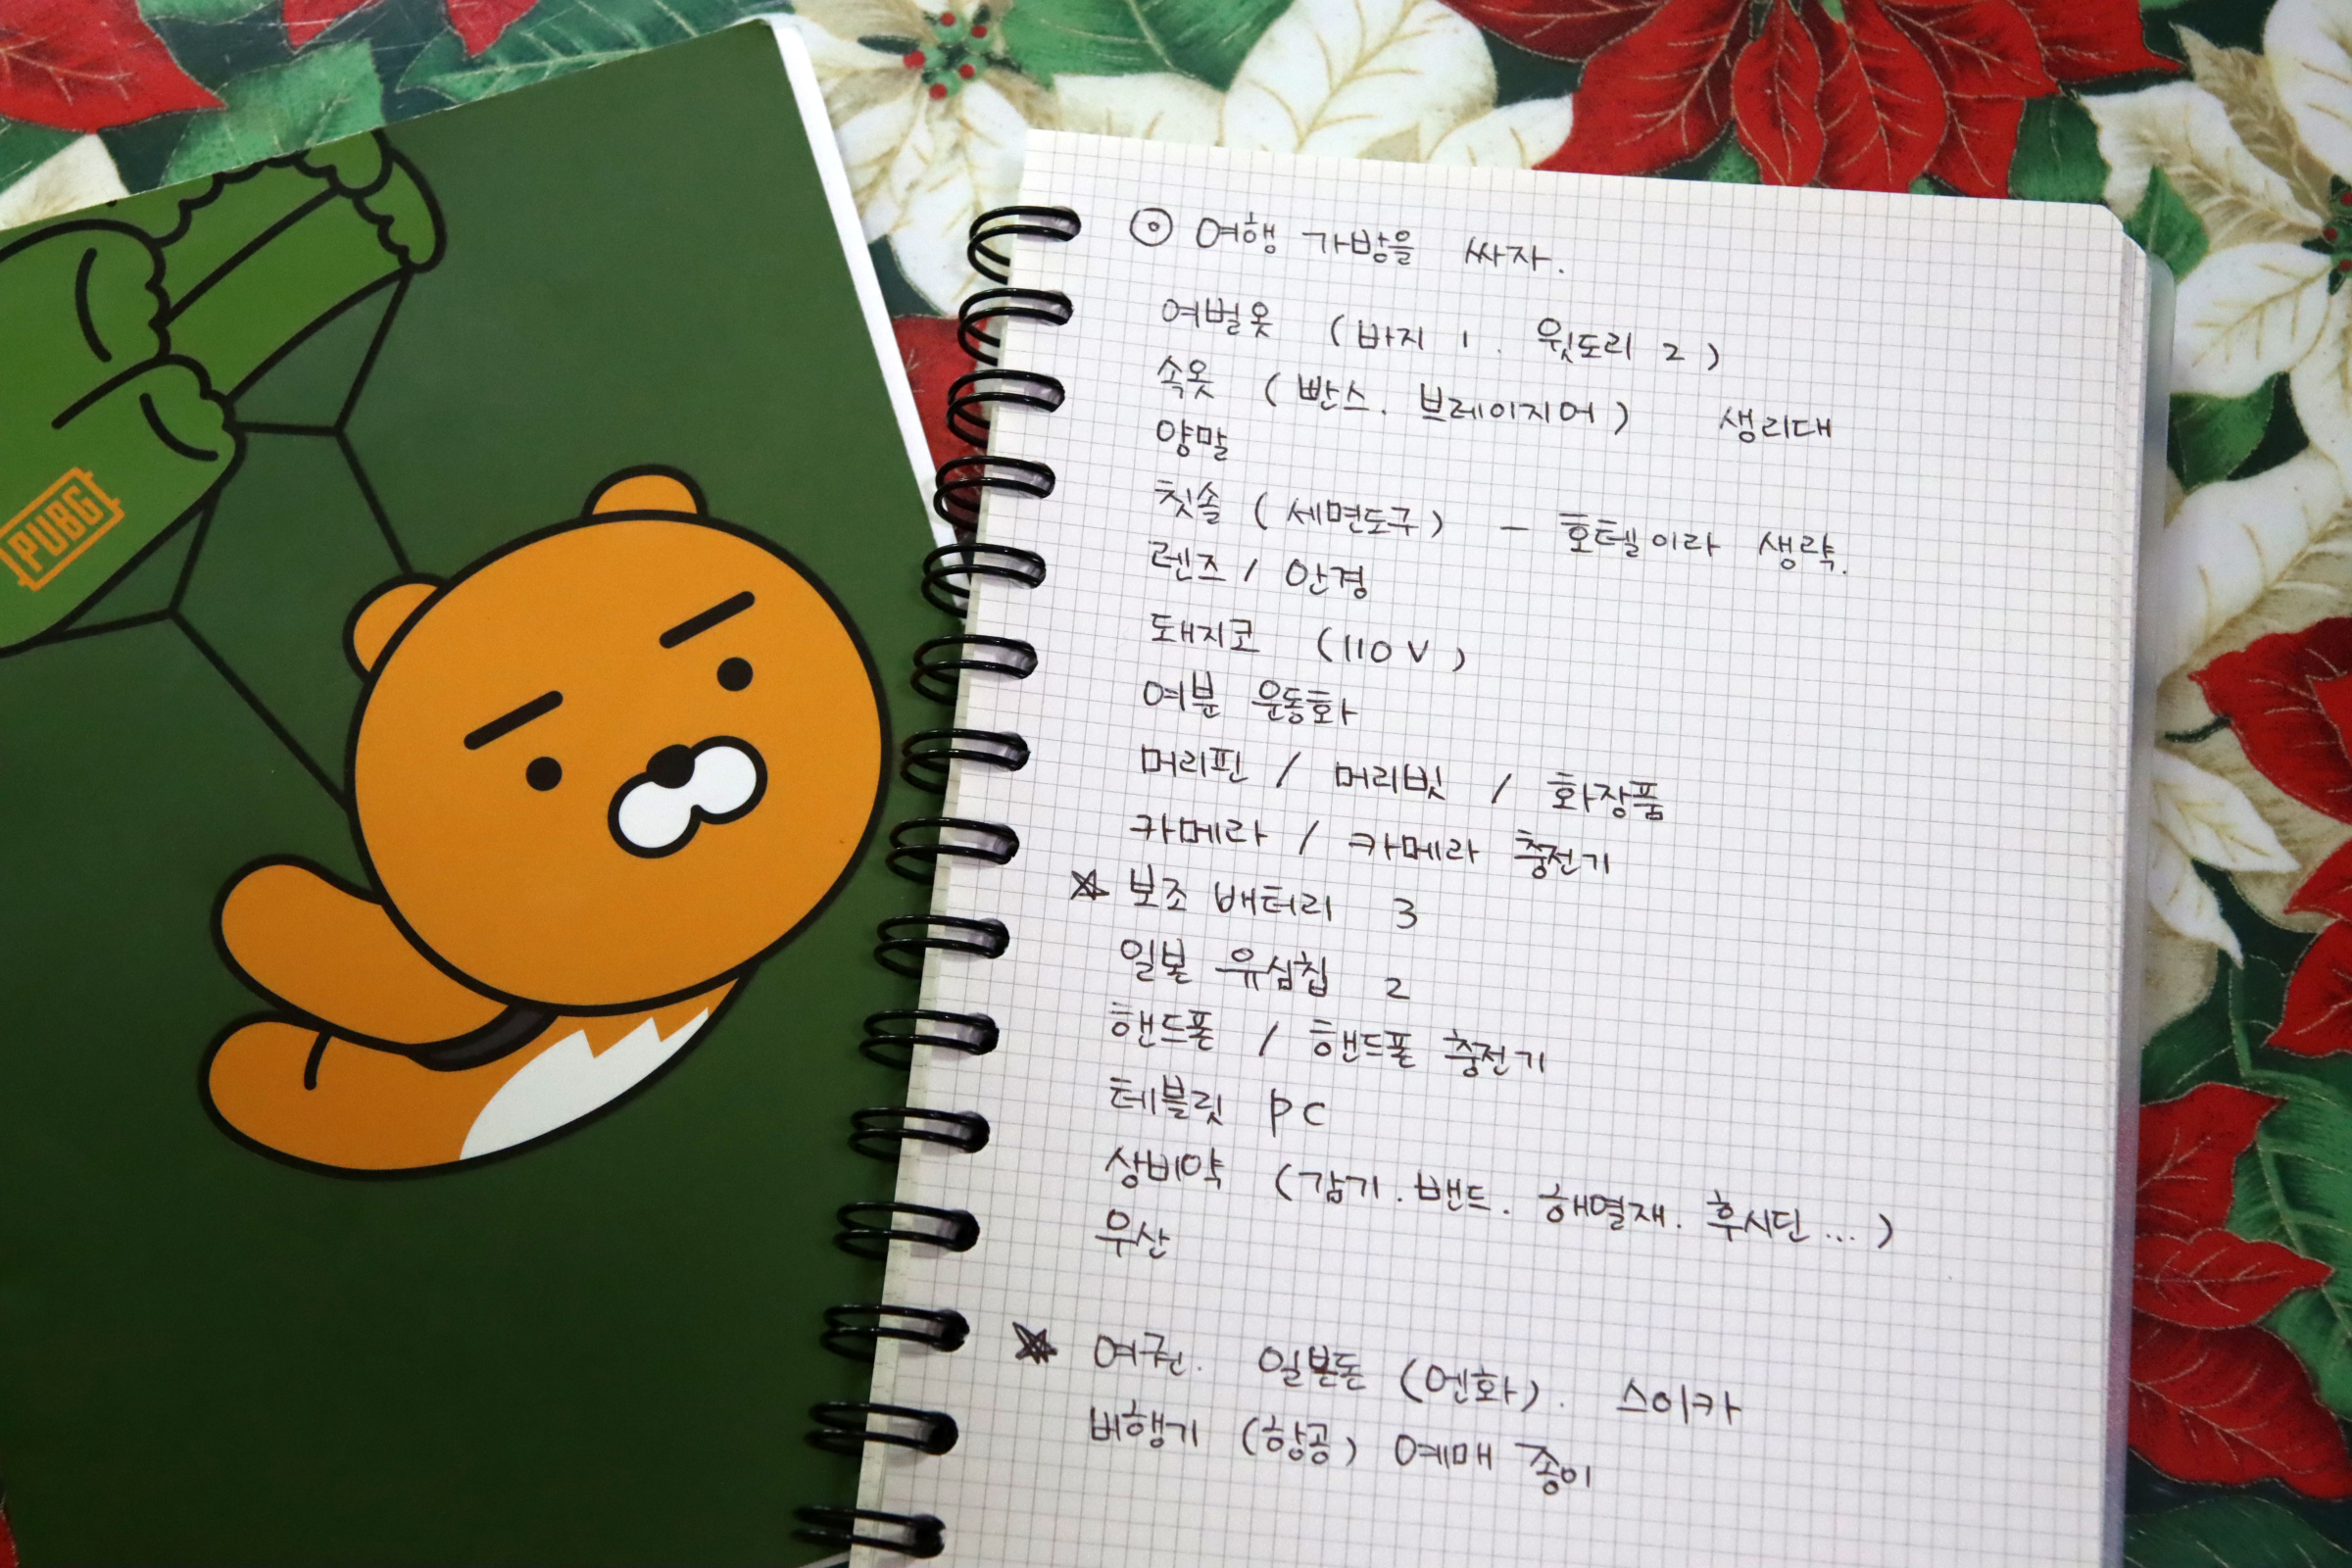 PUBG
⊙ 여행 가방을 싸자.
여벌옷 (바지 1. 윗도리 2)
속옷 (빤스. 브레이지어) 생리대
양말
칫솔 (세면도구) - 호텔이라 생략.
렌즈 / 안경
돼지코 (110V)
여분 운동화
머리핀 / 머리빗 / 화장품
카메라 / 카메라 충전기
★ 보조 배터리 3
일본 유심칩 2
핸드폰 / 핸드폰 충전기
테블릿 PC
상비약 (감기. 밴드. 해열재. 후시딘...)
우산
★ 여권. 일본돈 (엔화). 스이카
비행기 (항공) 예매 종이